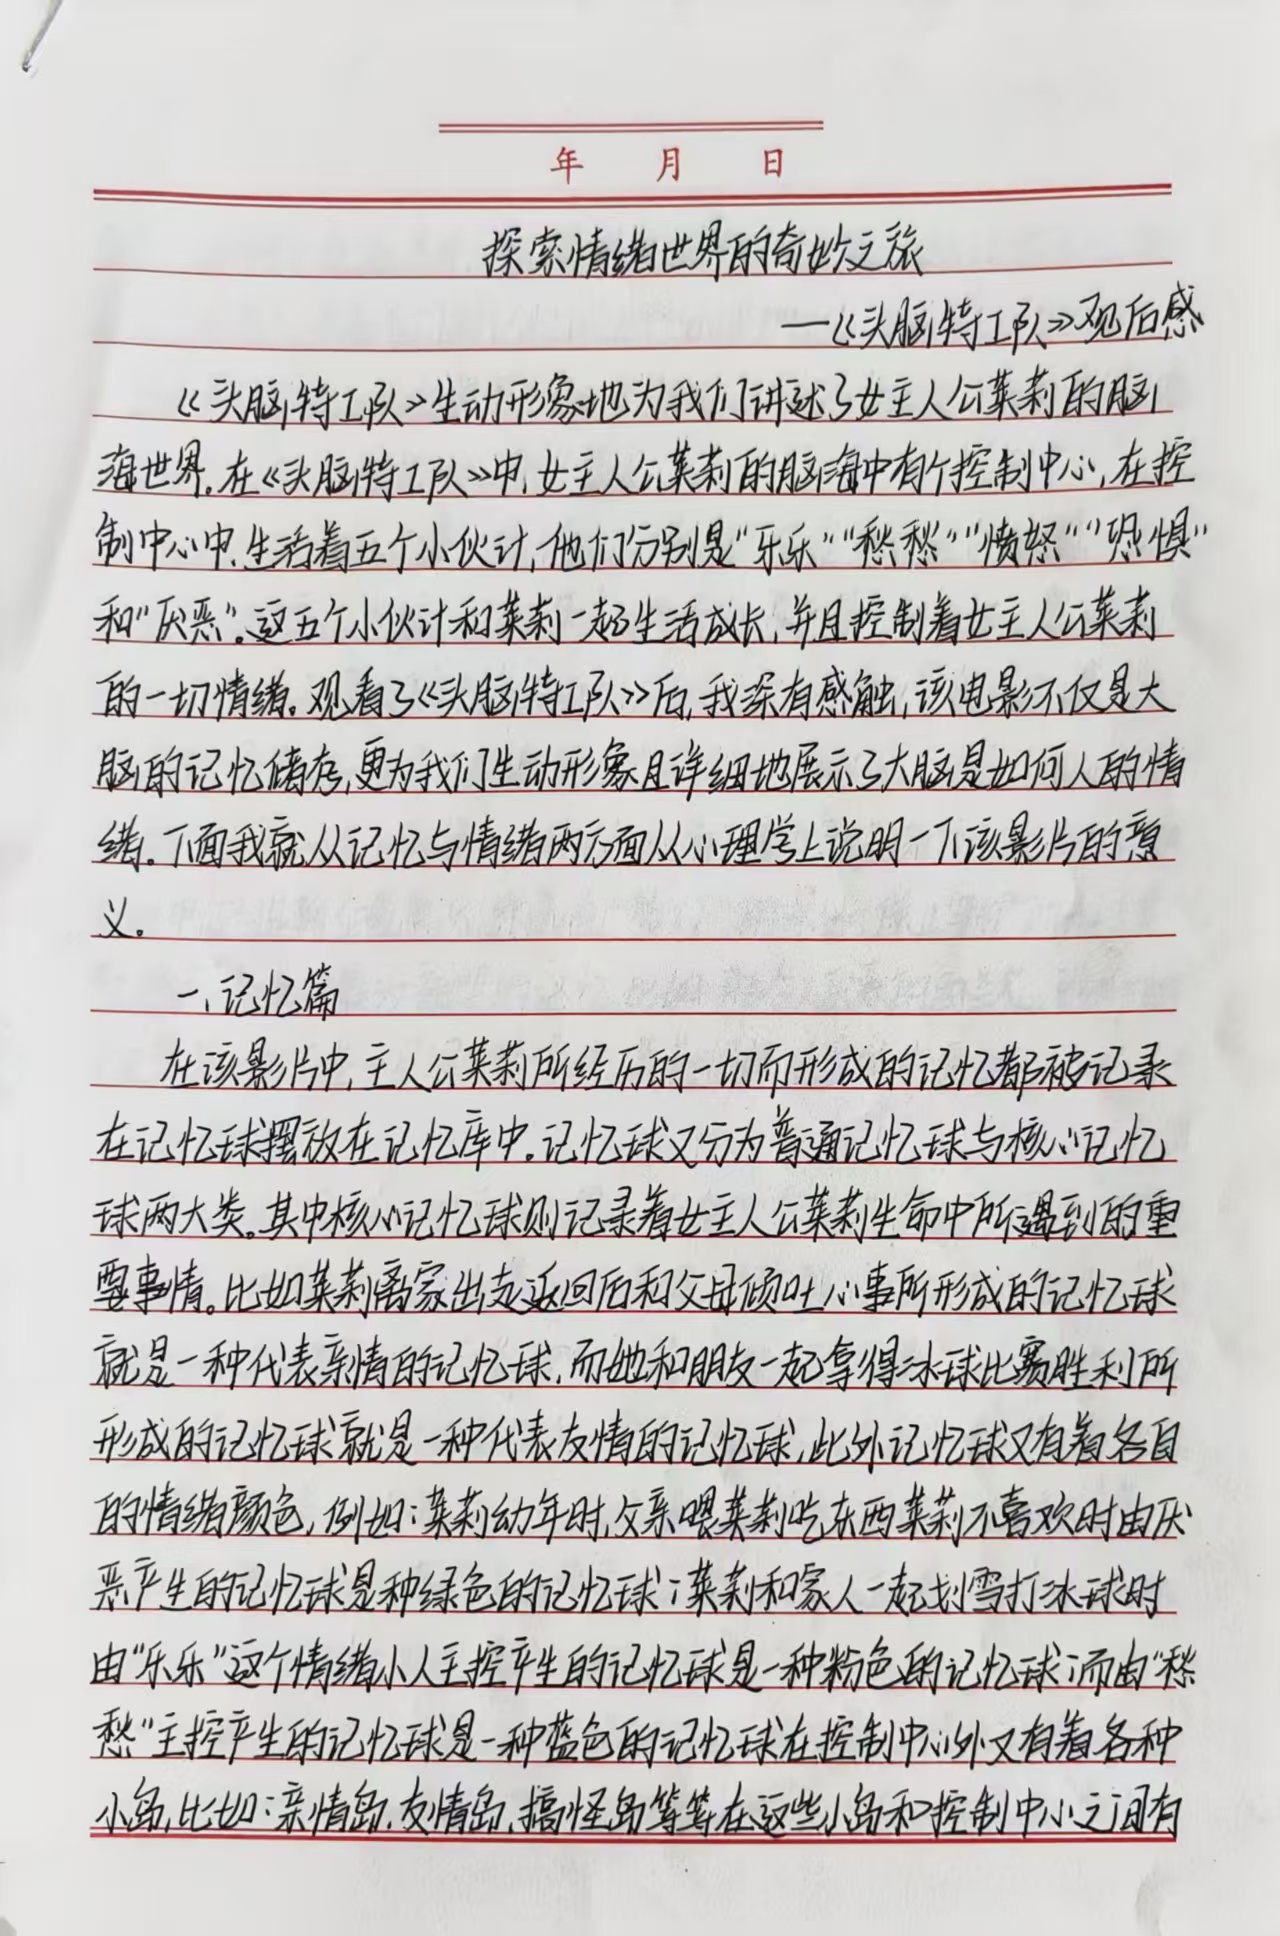 年 月 日
探索情绪世界的奇妙之旅
—《头脑特工队》观后感
《头脑特工队》生动形象地为我们讲述了女主人公莱莉的脑
海世界。在《头脑特工队》中,女主人公莱莉的脑海中有个控制中心,在控
制中心中,生活着五个小伙计,他们分别是“乐乐”“愁愁”“愤怒”“恐惧”
和“厌恶”。这五个小伙计和莱莉一起生活成长,并且控制着女主人公莱莉
的一切情绪。观看了《头脑特工队》后,我深有感触,该电影不仅是大
脑的记忆储存,更为我们生动形象且详细地展示了大脑是如何人的情
绪。下面我就从记忆与情绪两方面从心理学上说明一下该影片的意
义。
一、记忆篇
在该影片中,主人公莱莉所经历的一切而形成的记忆都被记录
在记忆球摆放在记忆库中。记忆球又分为普通记忆球与核心记忆
球两大类。其中核心记忆球则记录着女主人公莱莉生命中所遇到的重
要事情。比如莱莉离家出走返回后和父母倾吐心事所形成的记忆球
就是一种代表亲情的记忆球,而她和朋友一起拿得冰球比赛胜利所
形成的记忆球就是一种代表友情的记忆球,此外记忆球又有着各自
的情绪颜色,例如:莱莉幼年时,父亲喂莱莉吃东西莱莉不喜欢时由厌
恶产生的记忆球是种绿色的记忆球;莱莉和家人一起划雪打冰球时
由“乐乐”这个情绪小人主控产生的记忆球是一种粉色的记忆球;而由“愁
愁”主控产生的记忆球是一种蓝色的记忆球在控制中心外又有着各种
小岛,比如:亲情岛,友情岛,搞怪岛等等在这些小岛和控制中心之间有